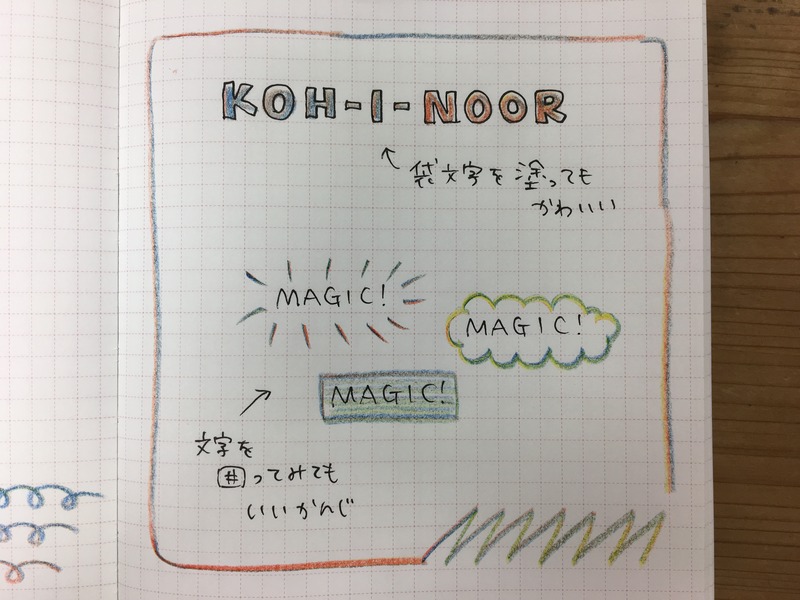 KOH-I-NOOR
↖袋文字を塗っても
かわいい
MAGIC!
MAGIC!
MAGIC!
文字を
囲ってみても
いいかんじ